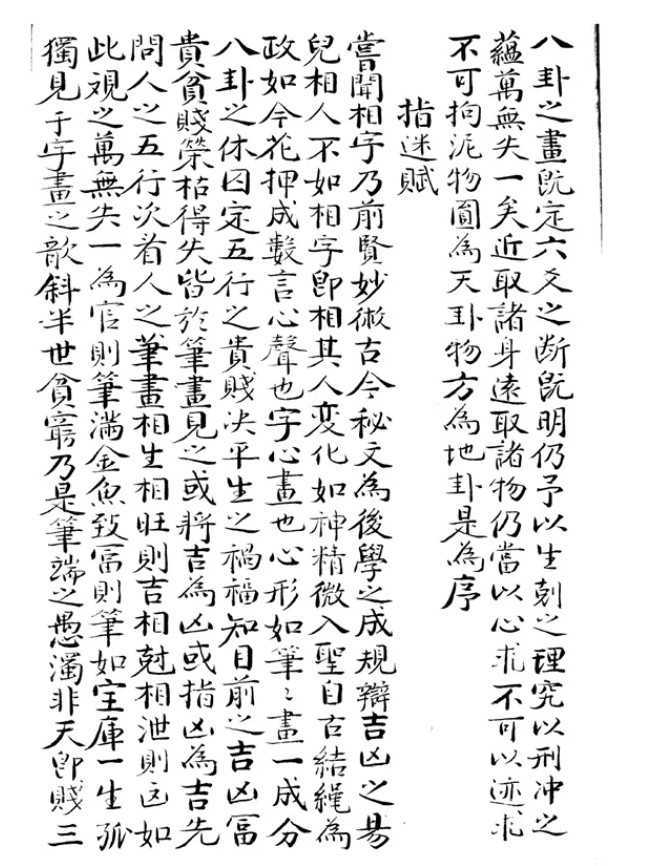 八卦之畫既定六爻之断既明仍予以生剋之理究以刑冲之
蘊萬無失一矣近取諸身遠取諸物仍當以心求不可以迹求
不可拘泥物圓為天卦物方為地卦是為序
指迷賦
嘗聞相字乃前賢妙術古今秘文為後學之成規辯吉凶之易
見相人不如相字即相其人变化如神精微入聖自古結縄為
政如今花押成數言心聲也字心畫也心形如筆〻畫一成分
八卦之休囙定五行之貴賤决平生之禍福知目前之吉凶冨
貴貧賤榮枯得失皆於筆畫見之或將吉為凶或指凶為吉先
問人之五行次看人之筆畫相生相旺則吉相尅相泄則凶如
此观之萬無失一為官則筆滿金魚致冨則筆如宝庫一生孤
獨見于字畫之歆斜半世貧窮乃是筆端之愚濁非夭即賤三